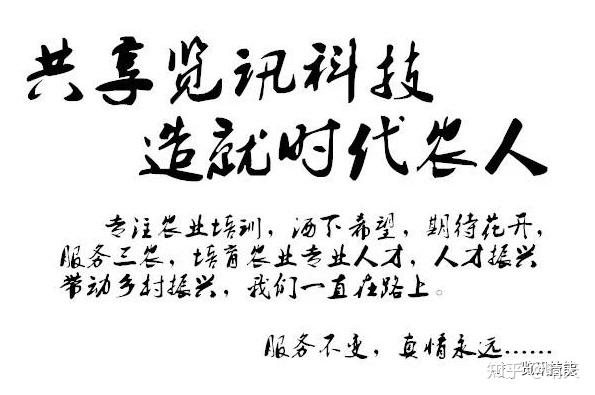 共享览讯科技
造就时代农人
专注农业培训，洒下希望，期待花开，
服务三农，培育农业专业人才，人才振兴
带动乡村振兴，我们一直在路上。
服务不变，真情永远……
知乎